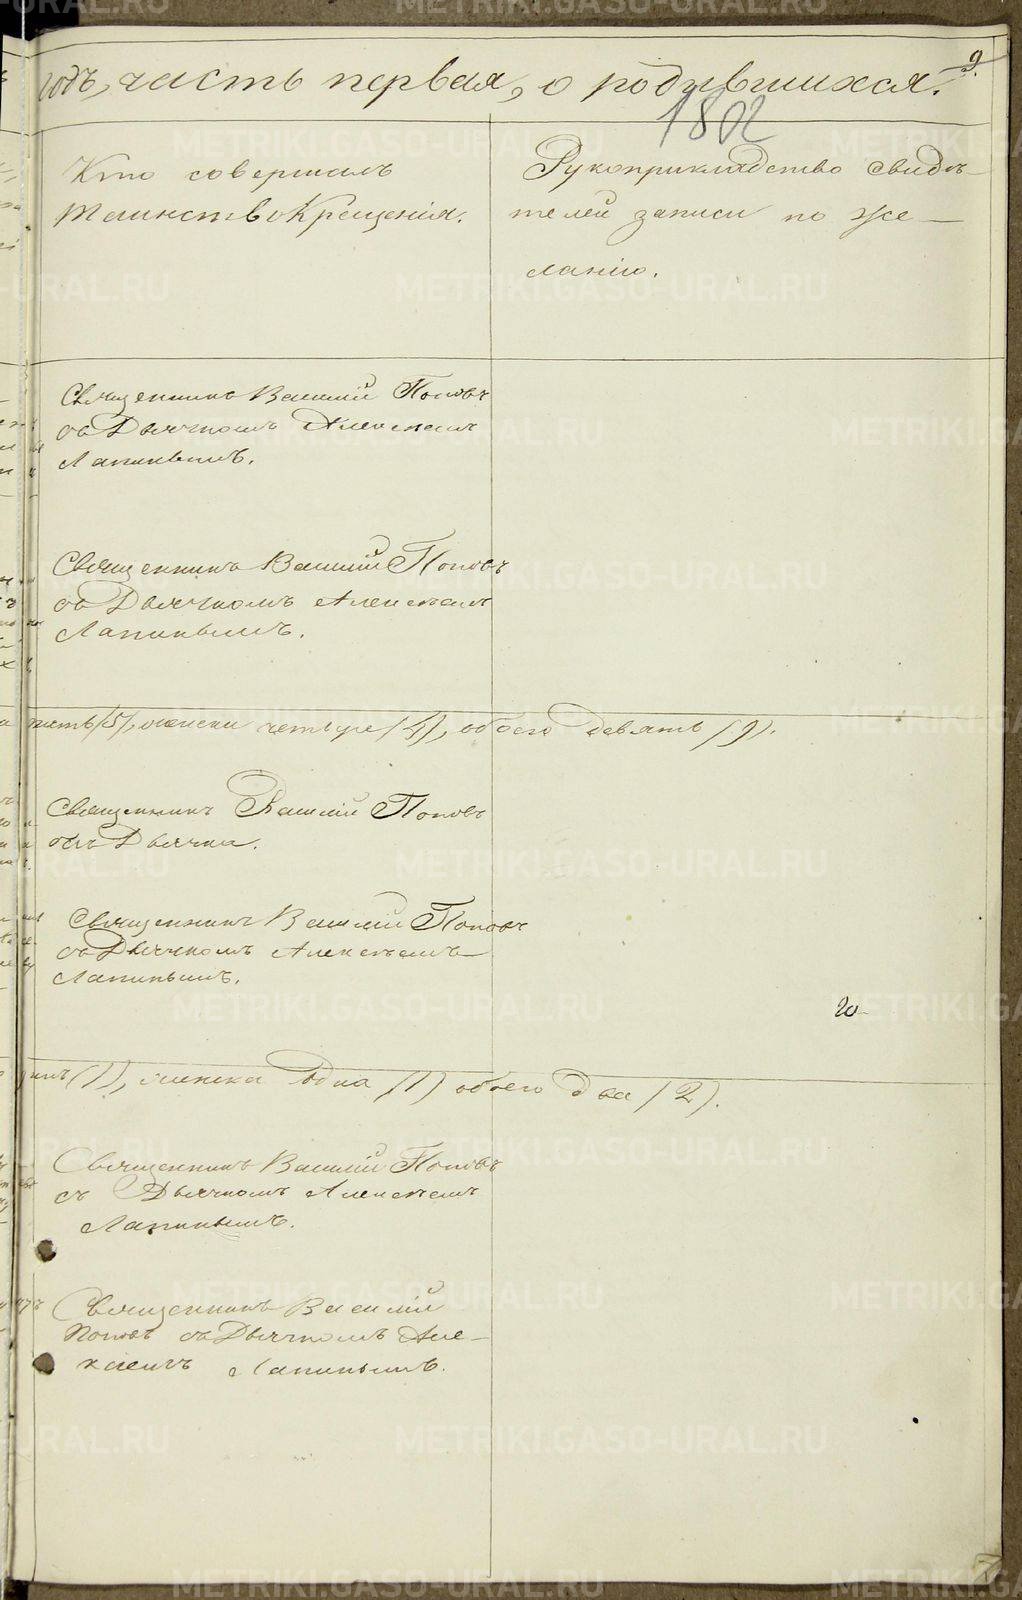 9.
годъ, часть первая, о родившихся.
1802
Кто совершалъ
таинство Крещенія.
Рукоприкладство свидѣ-
телей записи по же-
ланію.
Священникъ Василій Поповъ
съ Дьячкомъ Алексѣемъ
Лапинымъ.
Священникъ Василій Поповъ
съ Дьячкомъ Алексѣемъ
Лапинымъ.
пять /5/, женска четыре /4/, обоего девять /9/.
Священникъ Василій Поповъ
безъ Дьячка.
Священникъ Василій Поповъ
съ Дьячкомъ Алексѣемъ
Лапинымъ.
20
(1), женска одна /1/ обоего два /2/.
Священникъ Василій Поповъ
съ Дьячкомъ Алексѣемъ
Лапинымъ.
Священникъ Василій
Поповъ съ Дьячкомъ Але-
ксѣемъ Лапинымъ.
METRIKI.GASO-URAL.RU